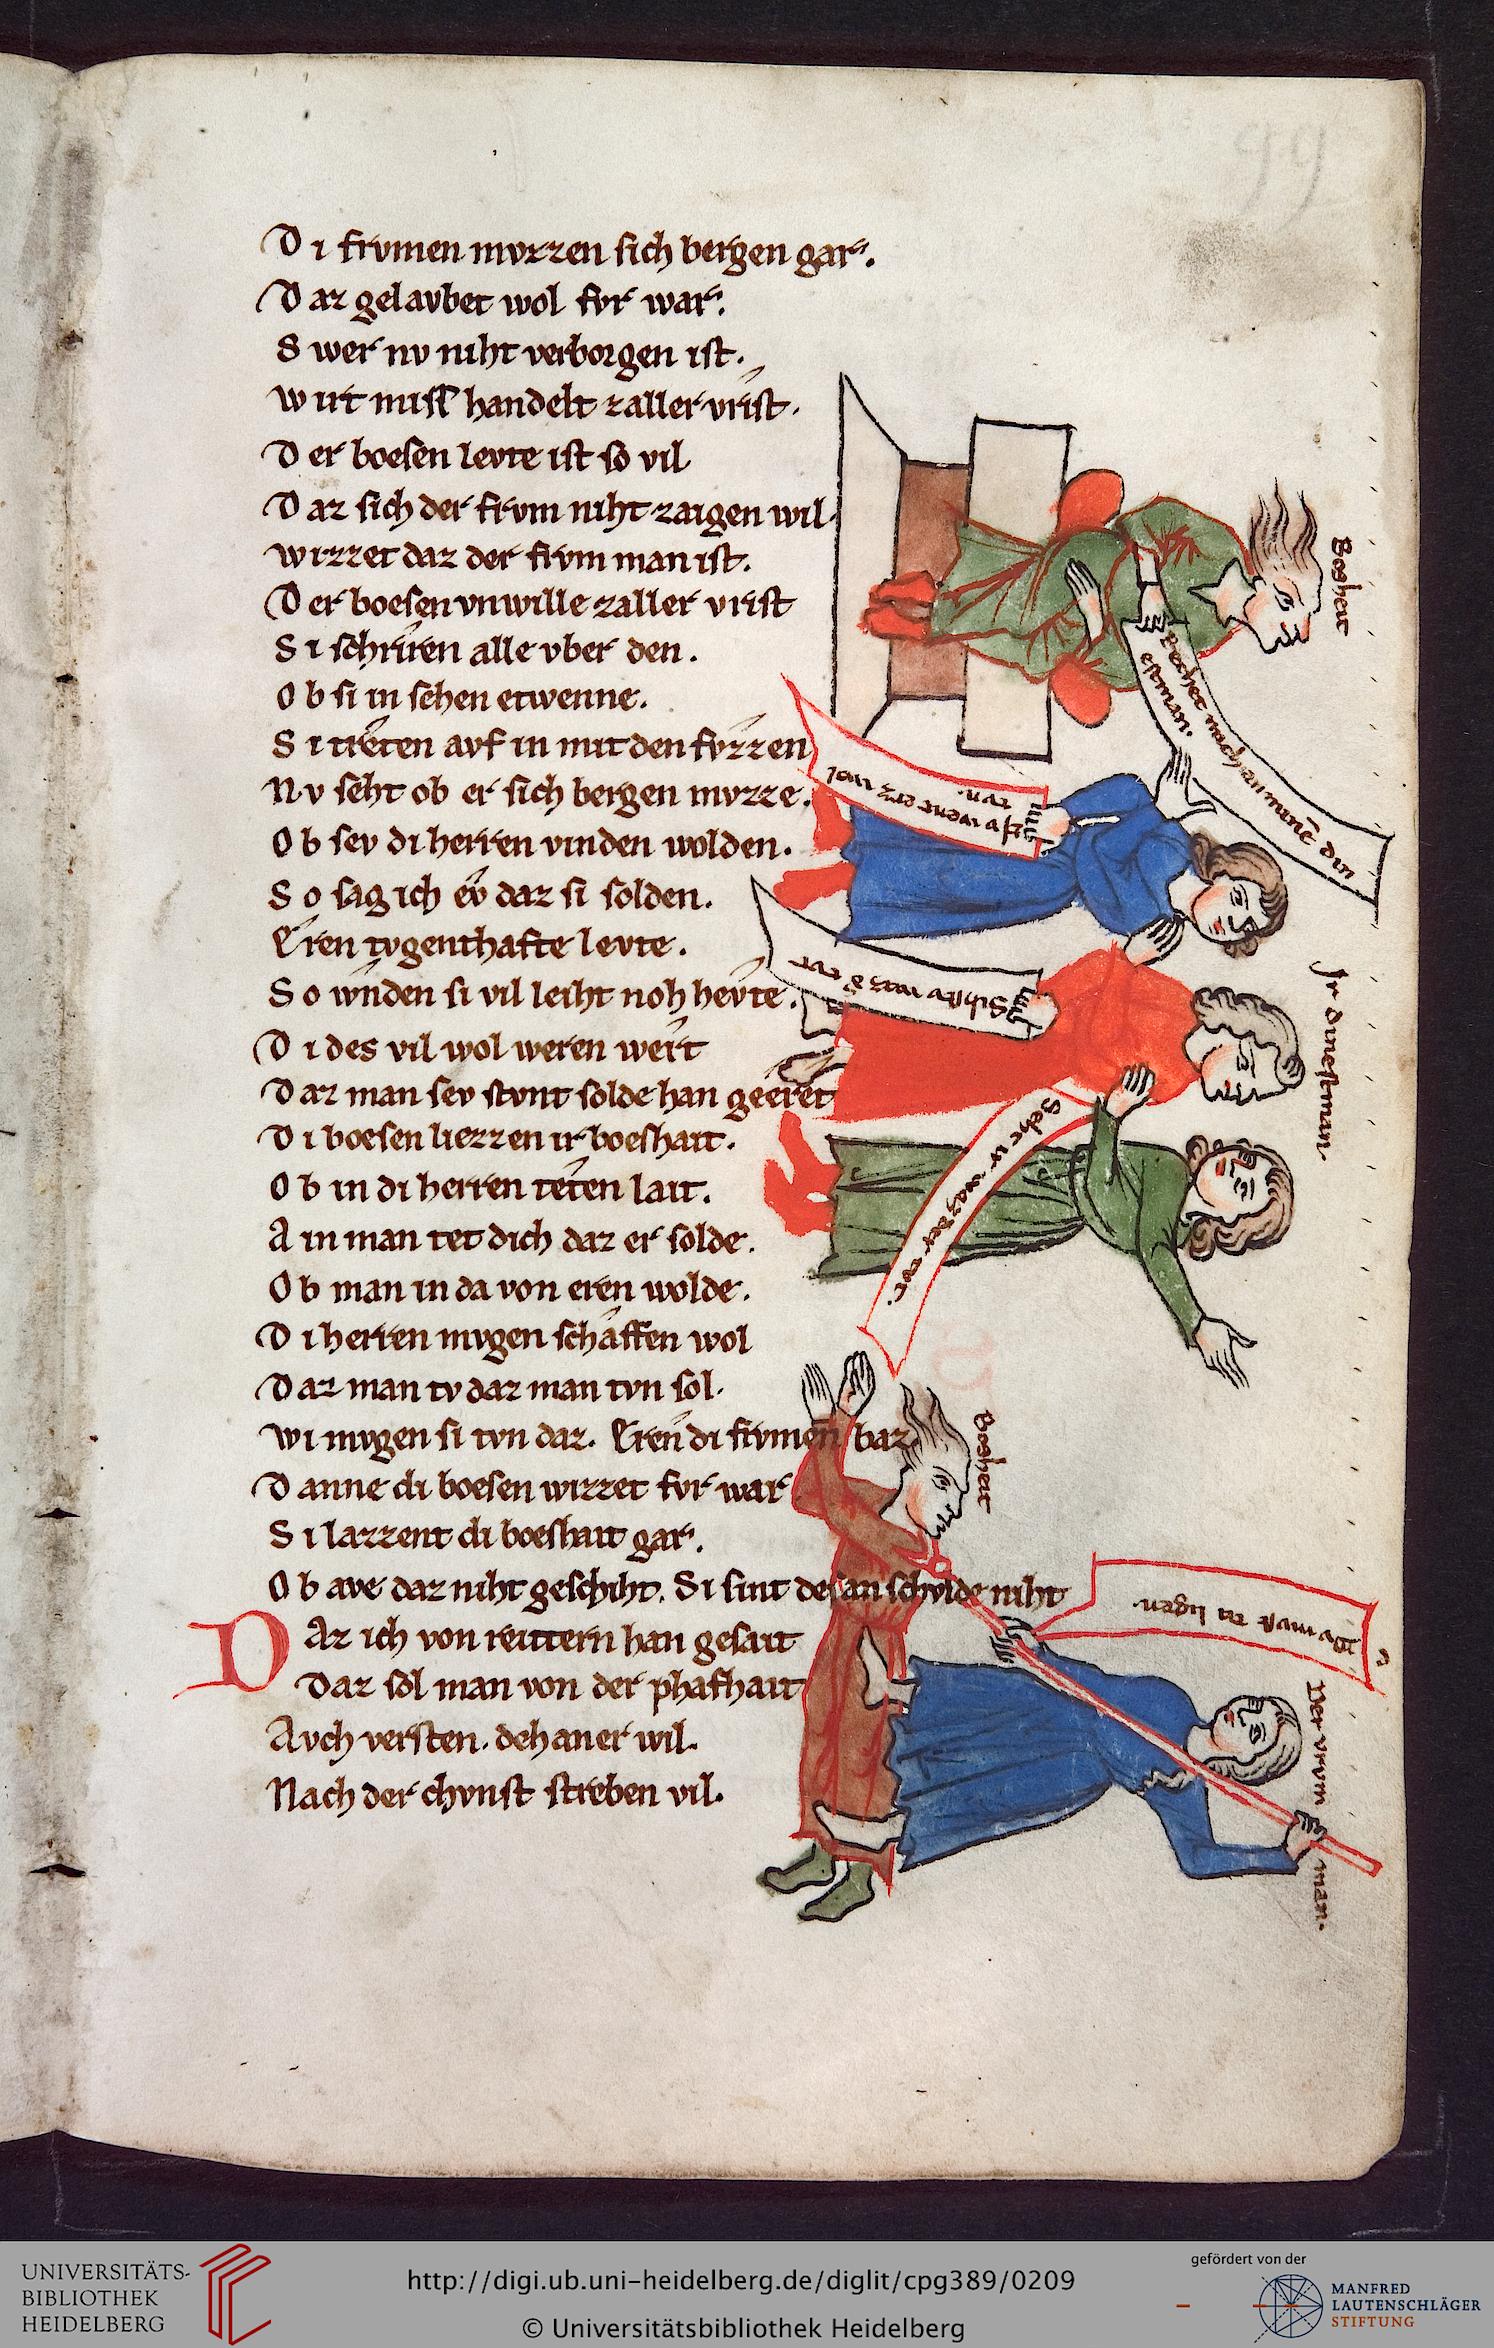 99
Di frvmen mvzzen sich bergen gar.
Daz gelavbet wol fvr war.
Swer nv niht verborgen ist.
Wirt missehandelt zaller vrist.
Der boesen levte ist so vil
Daz sich der frvm niht zaigen wil.
Wizzet daz der frvm man ist.
Der boesen vnwille zaller vrist
Si schriren alle vber den.
Ob si in sehen etwenne.
Si treten avf in mit den fvzzen
Nv seht ob er sich bergen mvzze.
Ob sev di herren vinden wolden.
So sag ich ev daz si solden.
Eren tvgenthafte levte.
So wnden si vil leiht noh hevte.
Di des vil wol weren wert
Daz man sev stvnt solde han geeret
Di boesen liezzen ir boeshait.
Ob in di herren teten lait.
Ain man tet dich daz er solde.
Ob man in da von eren wolde.
Di herren mvgen schaffen wol
Daz man tv daz man tvn sol.
Wi mvgen si tvn daz. Eren di frvmen baz
Danne di boesen wizzet fvr war
Si lazzent di boeshait gar.
Ob ave daz niht geschiht. Si sint des an schvlde niht
Daz ich von reittern han gesait
Daz sol man von der phafhait
Avch versten. dehaner wil.
Nach der chvnst streben vil.
Bosheit
Rechet mich an minē din
estman.
Ir dinestman.
Bosheit
Dv mvst tu ligen.
Der vrvm man.
UNIVERSITÄTS-
BIBLIOTHEK
HEIDELBERG
http://digi.ub.uni-heidelberg.de/diglit/cpg389/0209
© Universitätsbibliothek Heidelberg
gefördert von der
MANFRED
LAUTENSCHLÄGER
STIFTUNG